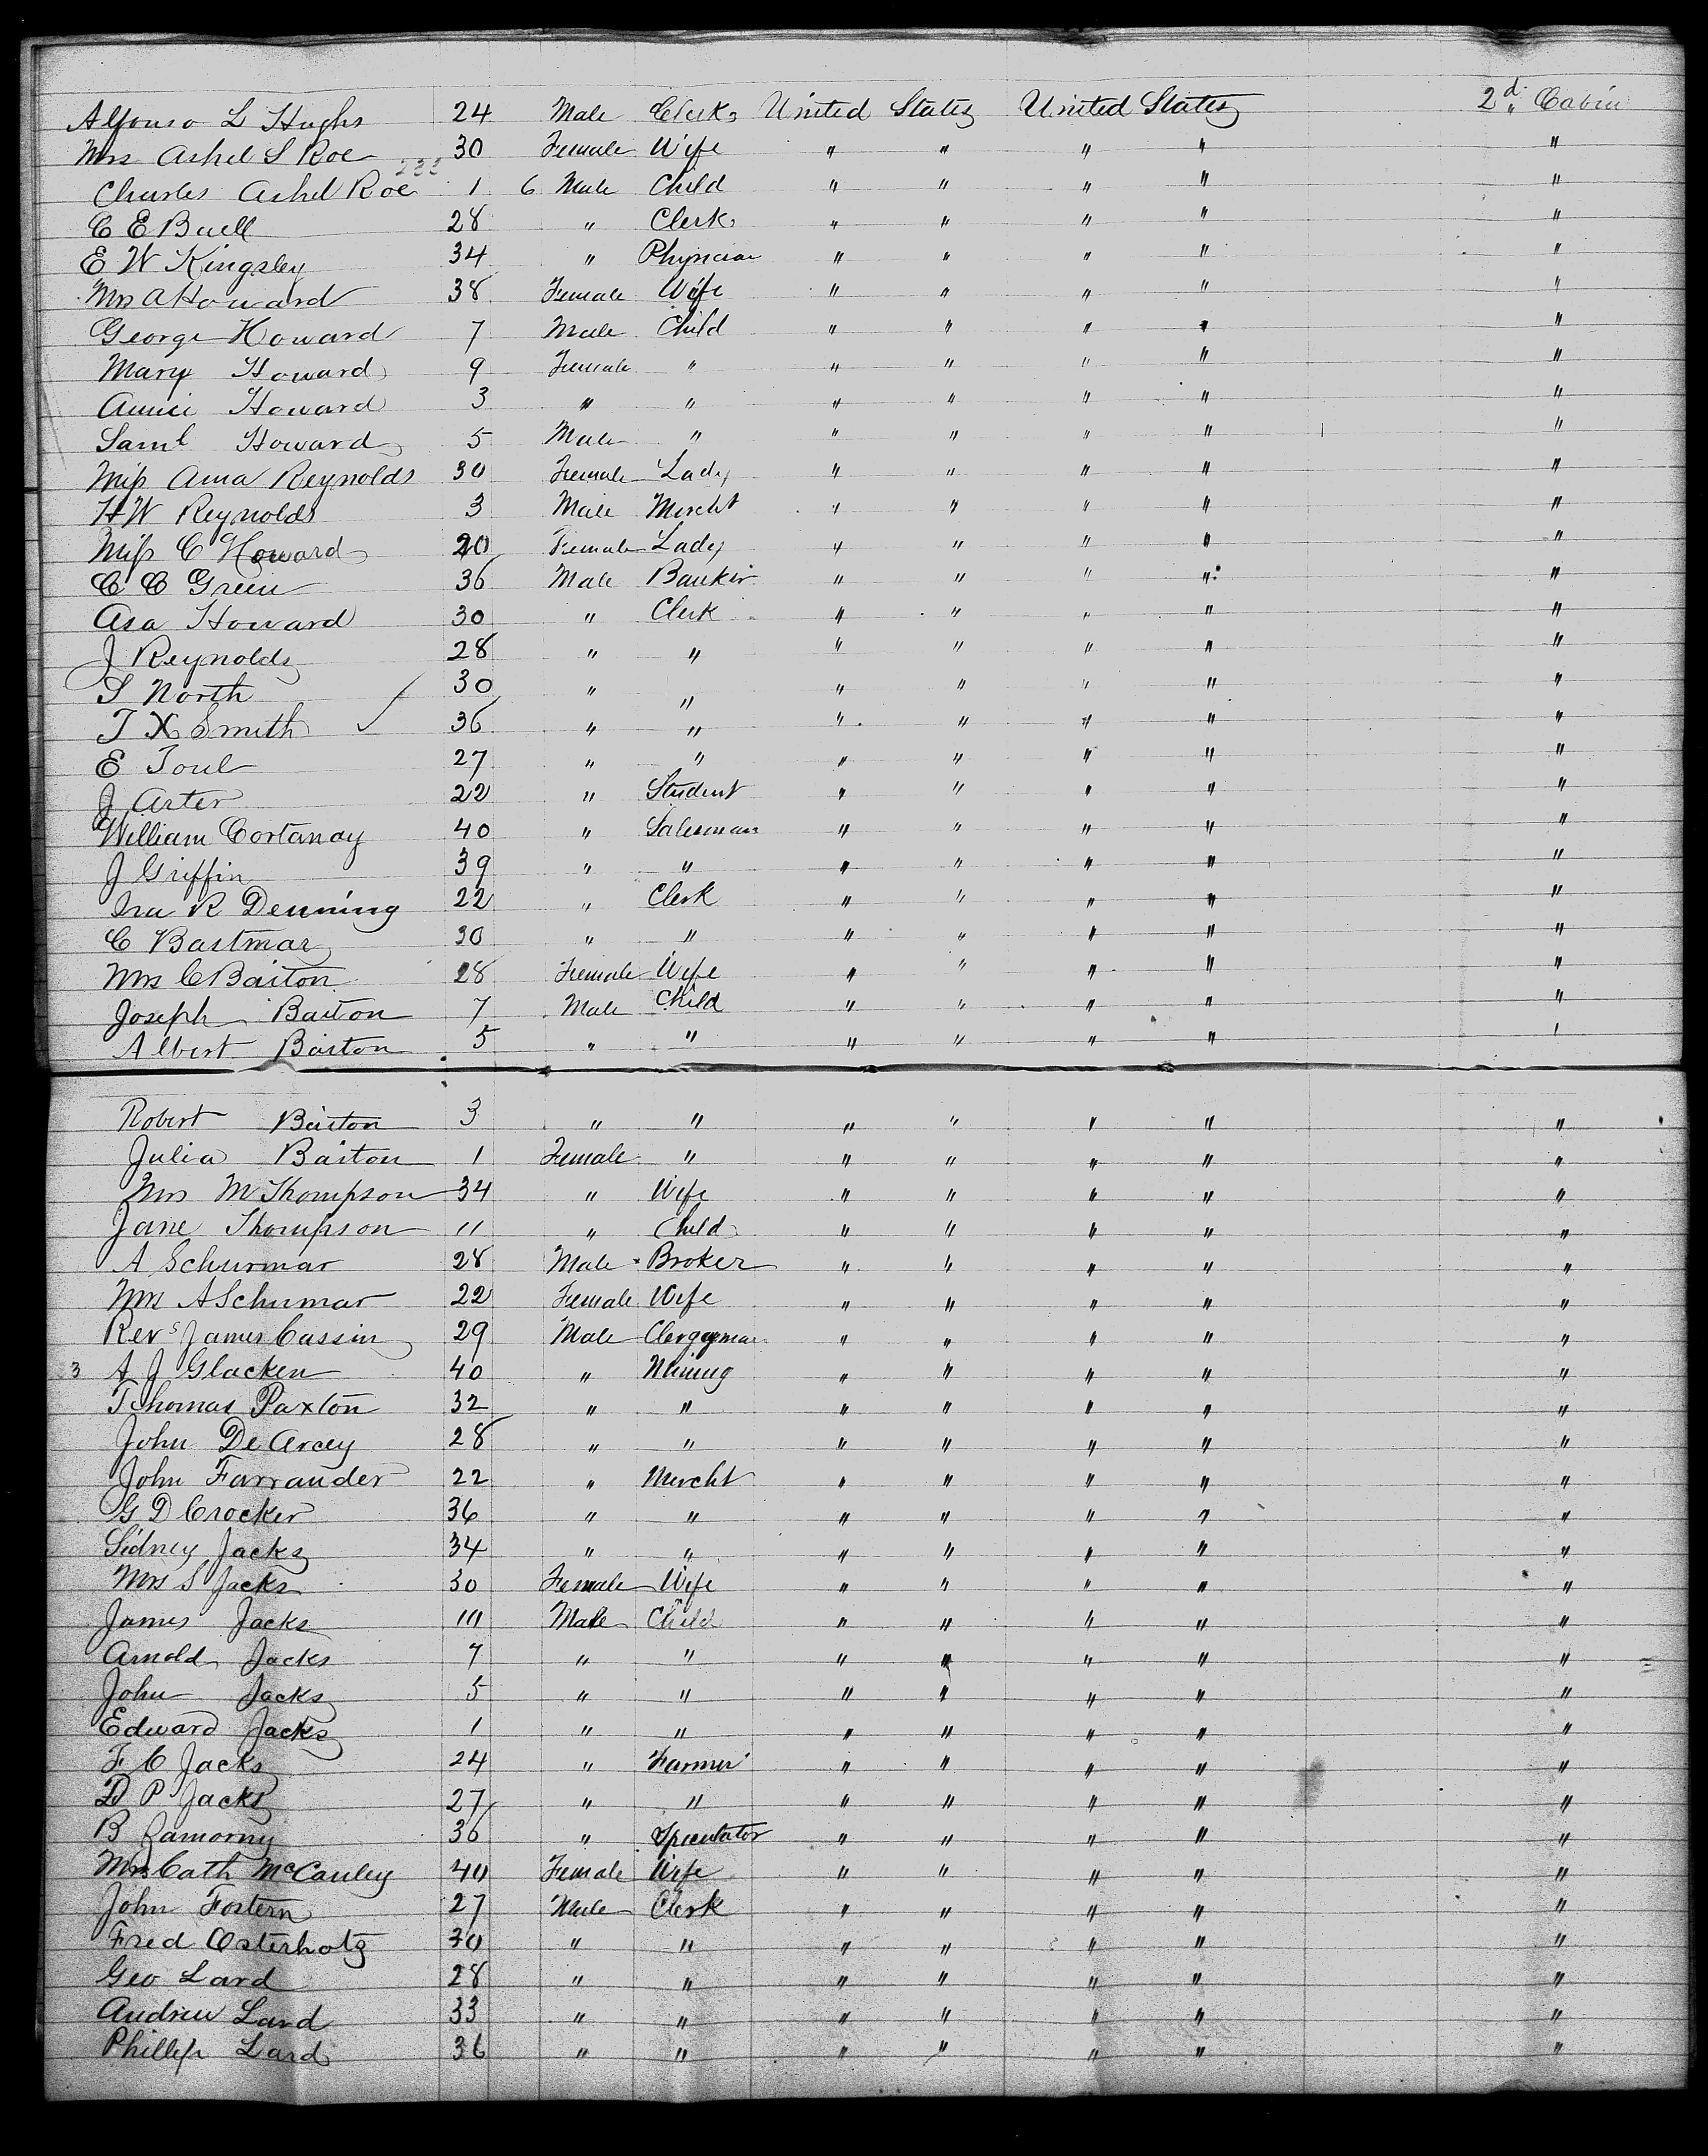 Alfonso L Hughs 24 Male Clerk United States United States 2d Cabin
Mrs Ashel S Roe 30 Female Wife " " " " "
Charles Ashel Roe 1 6 Male Child " " " " "
C E Buell 28 " Clerk " " " " "
E W Kingsley 34 " Physician " " " " "
Mrs A Howard 38 Female Wife " " " " "
George Howard 7 Male Child " " " " "
Mary Howard 9 Female " " " " " "
Annie Howard 3 " " " " " " "
Saml Howard 5 Male " " " " " "
Miss Ama Reynolds 30 Female Lady " " " " "
H W Reynolds 3 Male Mercht " " " " "
Miss C Howard 20 Female Lady " " " " "
C C Green 36 Male Banker " " " " "
Asa Howard 30 " Clerk " " " " "
J Reynolds 28 " " " " " " "
S North 30 " " " " " " "
T X Smith 36 " " " " " " "
E Toul 27 " " " " " " "
J Arter 22 " Student " " " " "
William Cortanay 40 " Salesman " " " " "
J Griffin 39 " " " " " " "
Ira R Denning 22 " Clerk " " " " "
C Bastmar 30 " " " " " " "
Mrs C Barton 28 Female Wife " " " " "
Joseph Barton 7 Male Child " " " " "
Albert Barton 5 " " " " " " "
Robert Barton 3 " " " " " " "
Julia Barton 1 Female " " " " " "
Mrs M Thompson 34 " Wife " " " " "
Jane Thompson 11 " Child " " " " "
A Schurmar 28 Male Broker " " " " "
Mrs A Schurmar 22 Female Wife " " " " "
Revs James Cassin 29 Male Clergyman " " " " "
3 A J Glacken 40 " Mining " " " " "
Thomas Paxton 32 " " " " " " "
John De Arcey 28 " " " " " " "
John Farrander 22 " Mercht " " " " "
G D Crocker 36 " " " " " " "
Sidney Jacks 34 " " " " " " "
Mrs S Jacks 30 Female Wife " " " " "
James Jacks 10 Male Child " " " " "
Arnold Jacks 7 " " " " " " "
John Jacks 5 " " " " " " "
Edward Jacks 1 " " " " " " "
F C Jacks 24 " Farmer " " " " "
D P Jacks 27 " " " " " " "
B Ramorny 36 " Speculator " " " " "
Mrs Cath McCauley 40 Female Wife " " " " "
John Fostern 27 Male Clerk " " " " "
Fred Osterhotz 30 " " " " " " "
Geo Lard 28 " " " " " " "
Andrew Lard 33 " " " " " " "
Phillip Lard 36 " " " " " " "